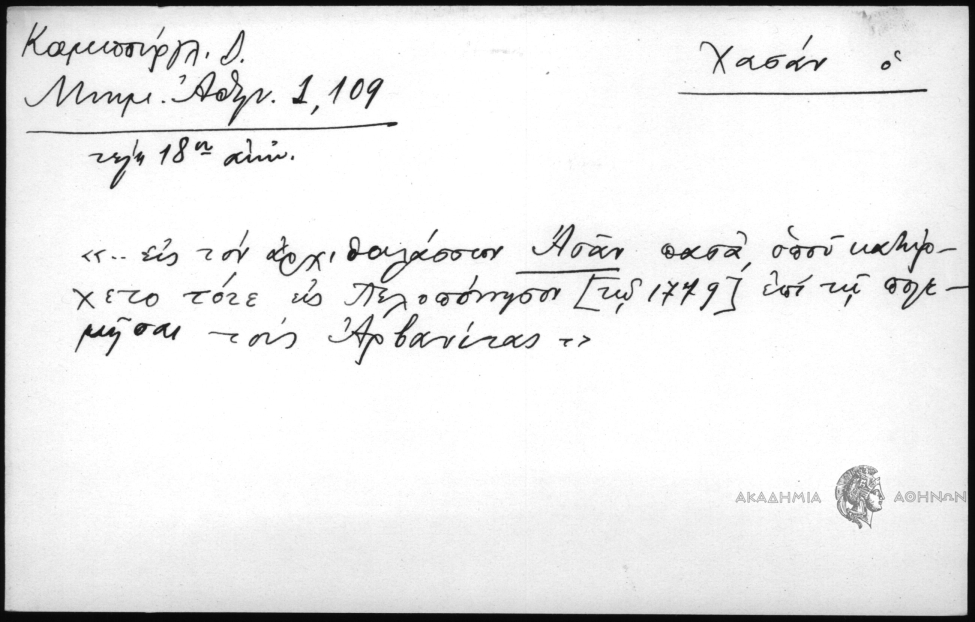 Καμπούρογλ. Δ.
Μνημ. Ἀθην. 1, 109
τέλη 18ου αἰῶν.
Χασάν ὁ
«.. εἰς τόν ἀρχιθαλάσσιον Ἀσᾶν πασᾶ, ὁποῦ κατήρ-
χετο τότε εἰς Πελοπόννησον [τῷ 1779] ἐπί τῷ πολε-
μῆσαι τούς Ἀρβανίτας »
ΑΚΑΔΗΜΙΑ ΑΘΗΝΩΝ